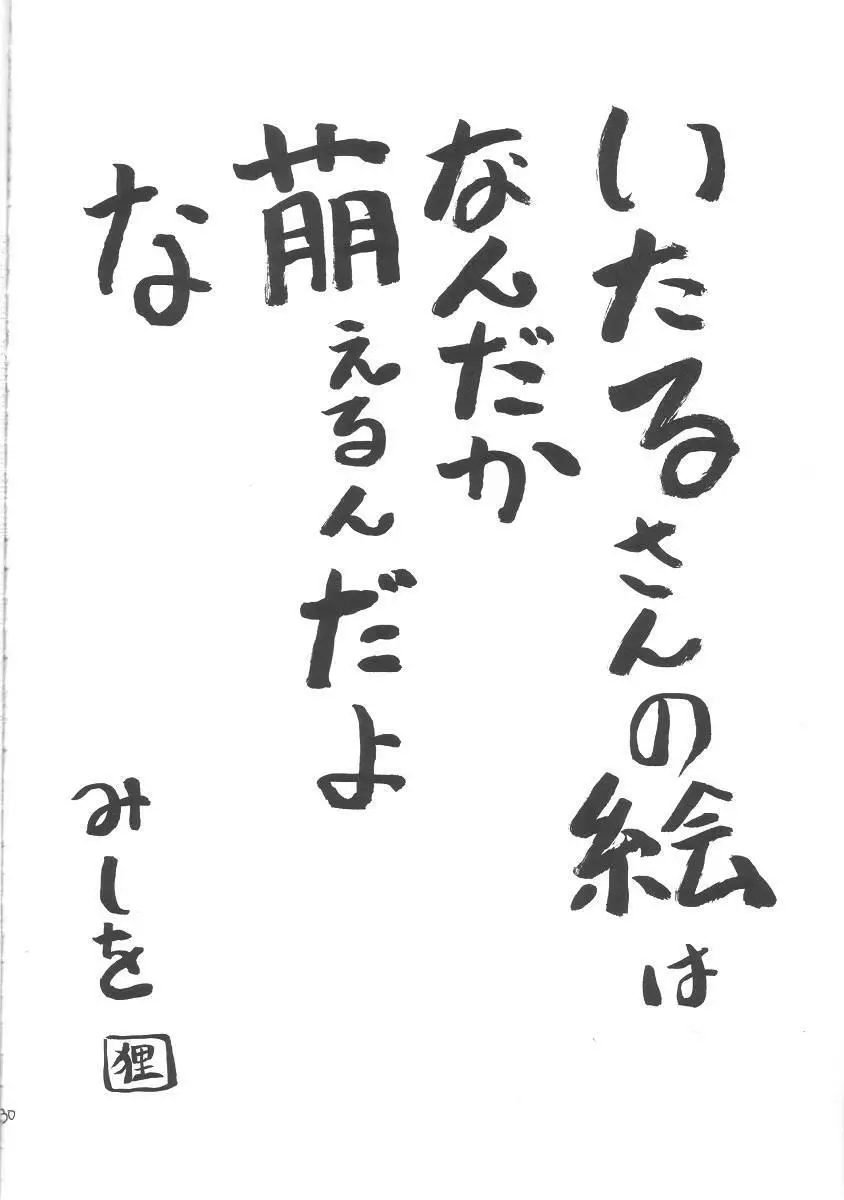 いたるさんの絵は
なんだか
萠えるんだよ
な
みしを
狸
30